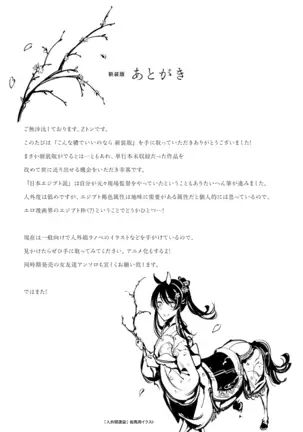 新装版 あとがき
ご無沙汰しております。Zトンです。
このたびは『こんな體でいいのなら 新装版』を手に取っていただきありがとうございました!
まさか新装版がでるとは…ともあれ、単行本未収録だった作品を
改めて世に送り出せる機会をいただき幸甚です。
『日本エジプト説』は自分が元々現場監督をやっていたということもありたいへん筆が進みました。
人外度は低めですが、エジプト褐色属性は地味に需要がある属性だと個人的には思っているので、
エロ漫画界のエジプト枠(?)ということでどうかひとつ…!
現在は一般向けで人外娘ラノベのイラストなどを手がけているので、
見かけたらぜひ手に取ってみてください。アニメ化もするよ!
同時期発売の女友達アンソロも宜しくお願い致します。
ではまた!